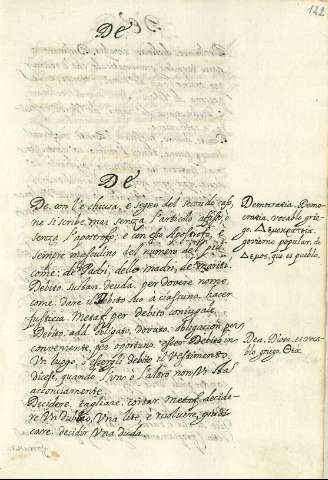 122
De
De
De con l'e chiusa, è segno del secondo caso,
ne si scrive mai senza l'articolo affisso, ò
senza l'apostrofo; è con esso Apostrofo, è
sempre masculino del numero del più
come: de' Padri, delle madri, de' mariti.
Debito. sustan. deuda. per dovere nome,
come dare il debito suo a ciascuno. hacer
justicia. Metaf. per debito coniugale.
Debito. add. obligato, dovuto, obligacion per
conveniente, per oportuno. esser Debito in
un luogo, è essergli debito il vestimento,
dicesi, quando l'uno è l'altro non vi sta
acconciamente.
Decidere. tagliare. cortar. metaf. decide-
re un dubbio, una lite, è risolvere,
care. decidir una duda.
Democratia. Demo-
cracia, vocablo grie-
go. Δημοκρατια.
govierno popular. de
Δεμος, que es pueblo.
Dea. Diosa. es voca-
blo griego. Θεα.